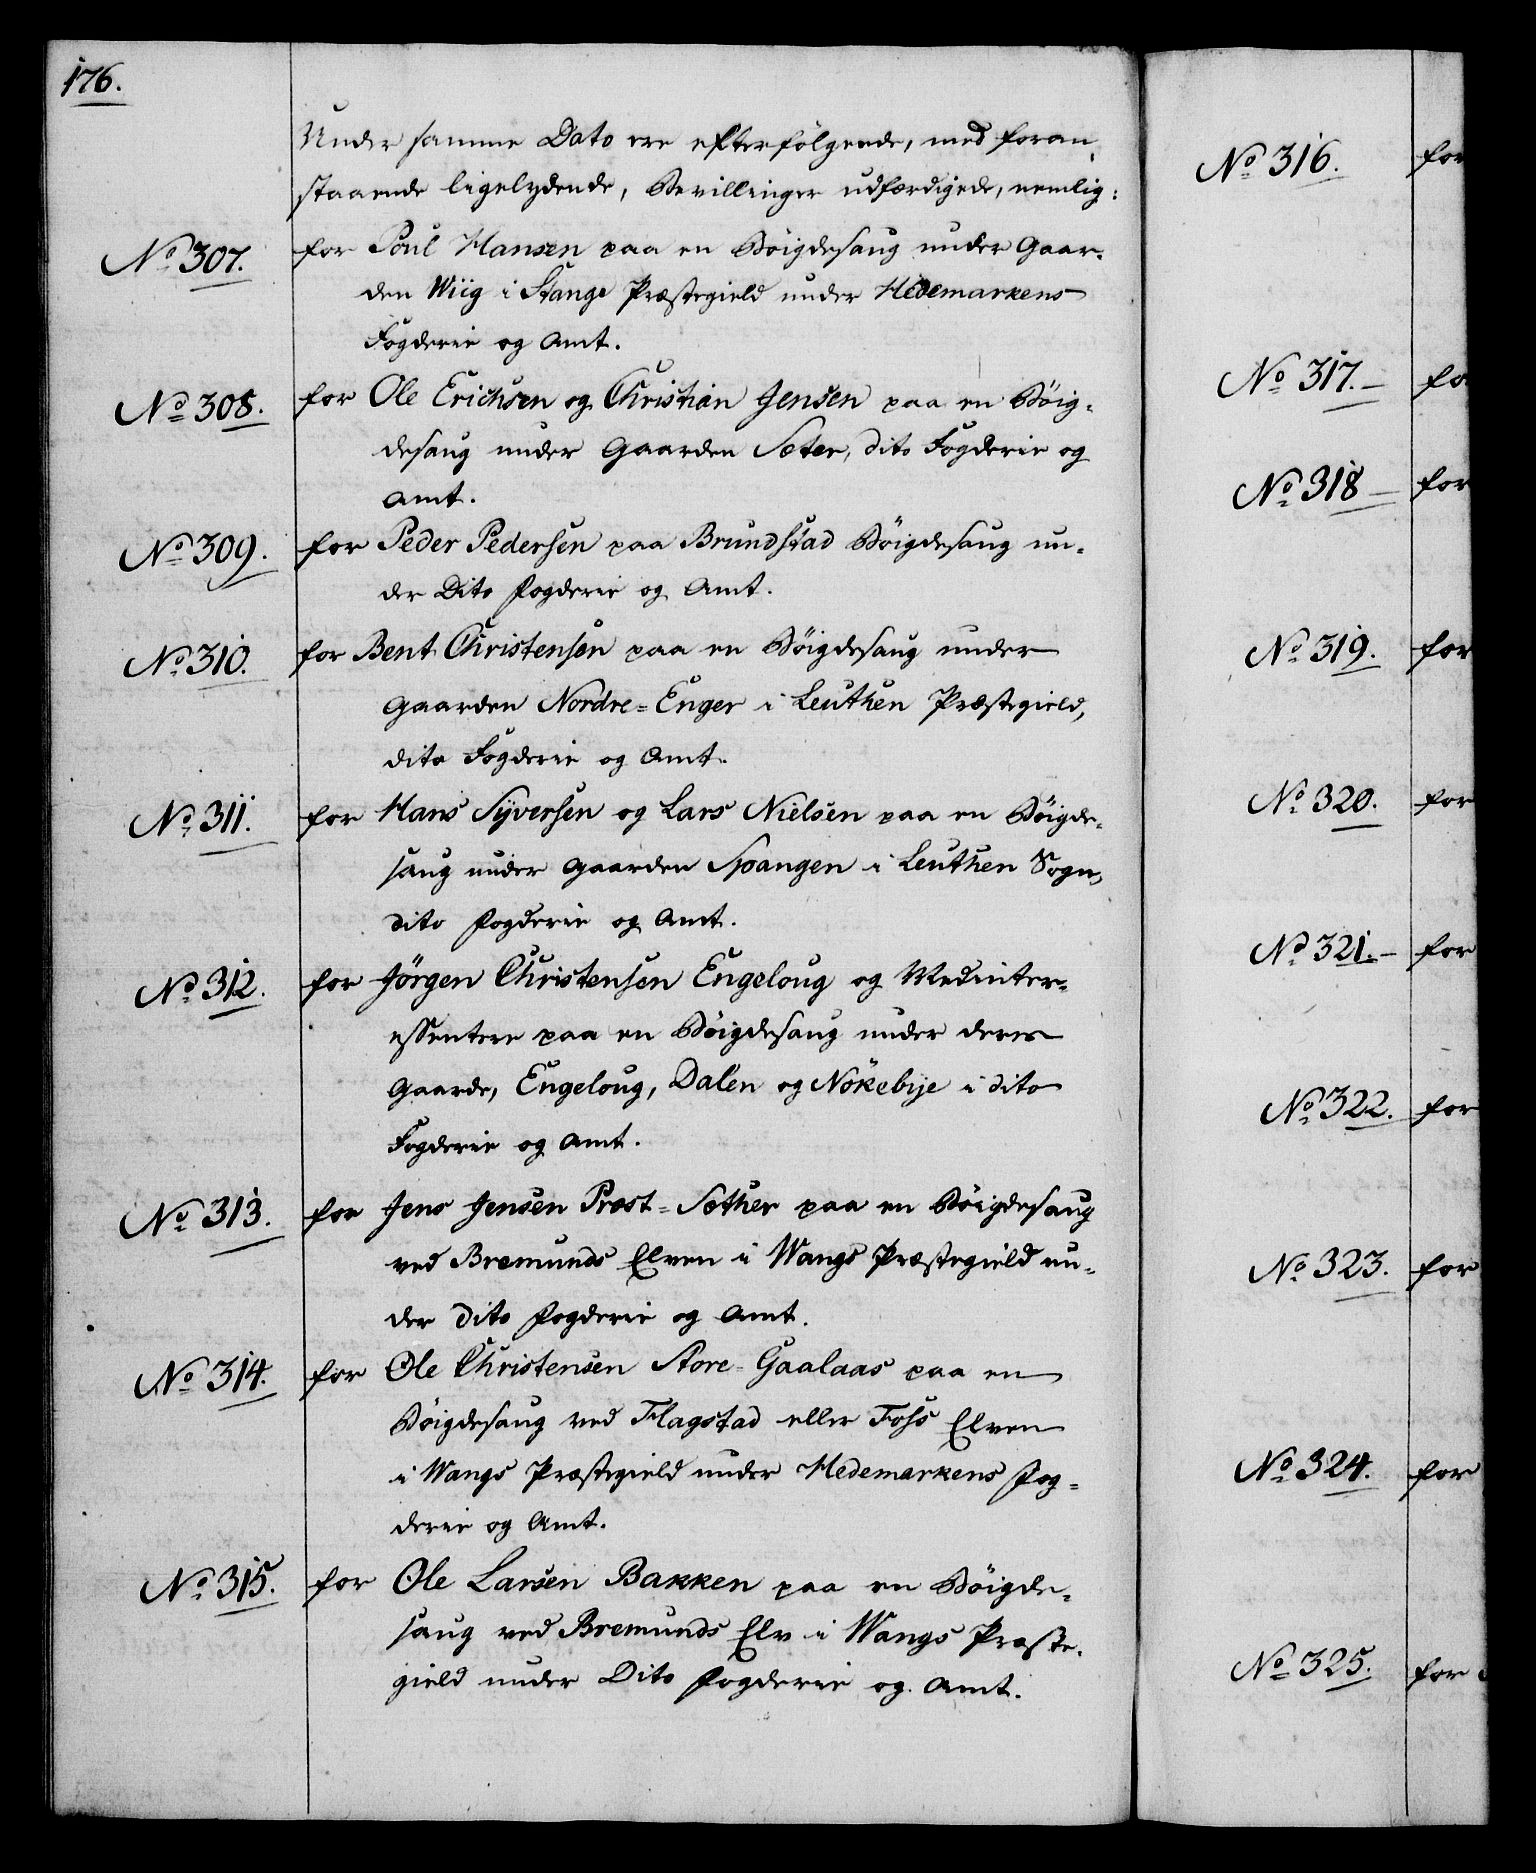 176.
Under samme Dato ere efterfölgende, med foran,
staaende ligelydende, Bevillinger udfærdigede, nemlig:
No 307. for Poul Hansen paa en Böigdesaug under Gaar-
den Wiig i Stange Præstegield under Hedemarkens
Fogderie og Amt.
No 308. for Ole Erichsen og Christian Jensen paa en Böig-
desaug under Gaarden Sæter, dito Fogderie og
Amt.
No 309. for Peder Pedersen paa Brundstad Böigdesaug un-
der Dito Fogderie og Amt.
No 310. for Bent Christensen paa en Böigdesaug under
Gaarden Nordre=Enger i Leuthen Præstegield,
dito Fogderie og Amt.
No 311. for Hans Syversen og Lars Nielsen paa en Böigde-
saug under Gaarden Spangen i Leuthen Sogn,
dito Fogderie og Amt.
No 312. for Jörgen Christensen Engeloug og Medinter-
essentere paa en Böigdesaug under deres
Gaarde, Engeloug, Dalen og Nökebye i dito
Fogderie og Amt.
No 313. for Jens Jensen Præst=Sæther paa en Böigdesaug
ved Bremunds Elven i Wangs Præstegield un-
der dito Fogderie og Amt.
No 314. for Ole Christensen Store-Gaalaas paa en
Böigdesaug ved Flagstad eller Foss Elven
i Wangs Præstegield under Hedemarkens Fog-
derie og Amt.
No 315. for Ole Larsen Bakken paa en Böigde-
saug ved Bremunds Elv i Wangs Præste-
gield under Dito Fogderie og Amt.
No 316. for
No 317. fo
No 318 for
No 319. for
No 320. for
No 321. for
No 322. for
No 323. for
No 324. for
No 325. for